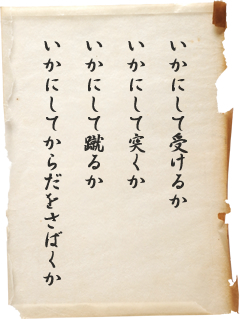 いかにして受けるか
いかにして突くか
いかにして蹴るか
いかにしてからだをさばくか